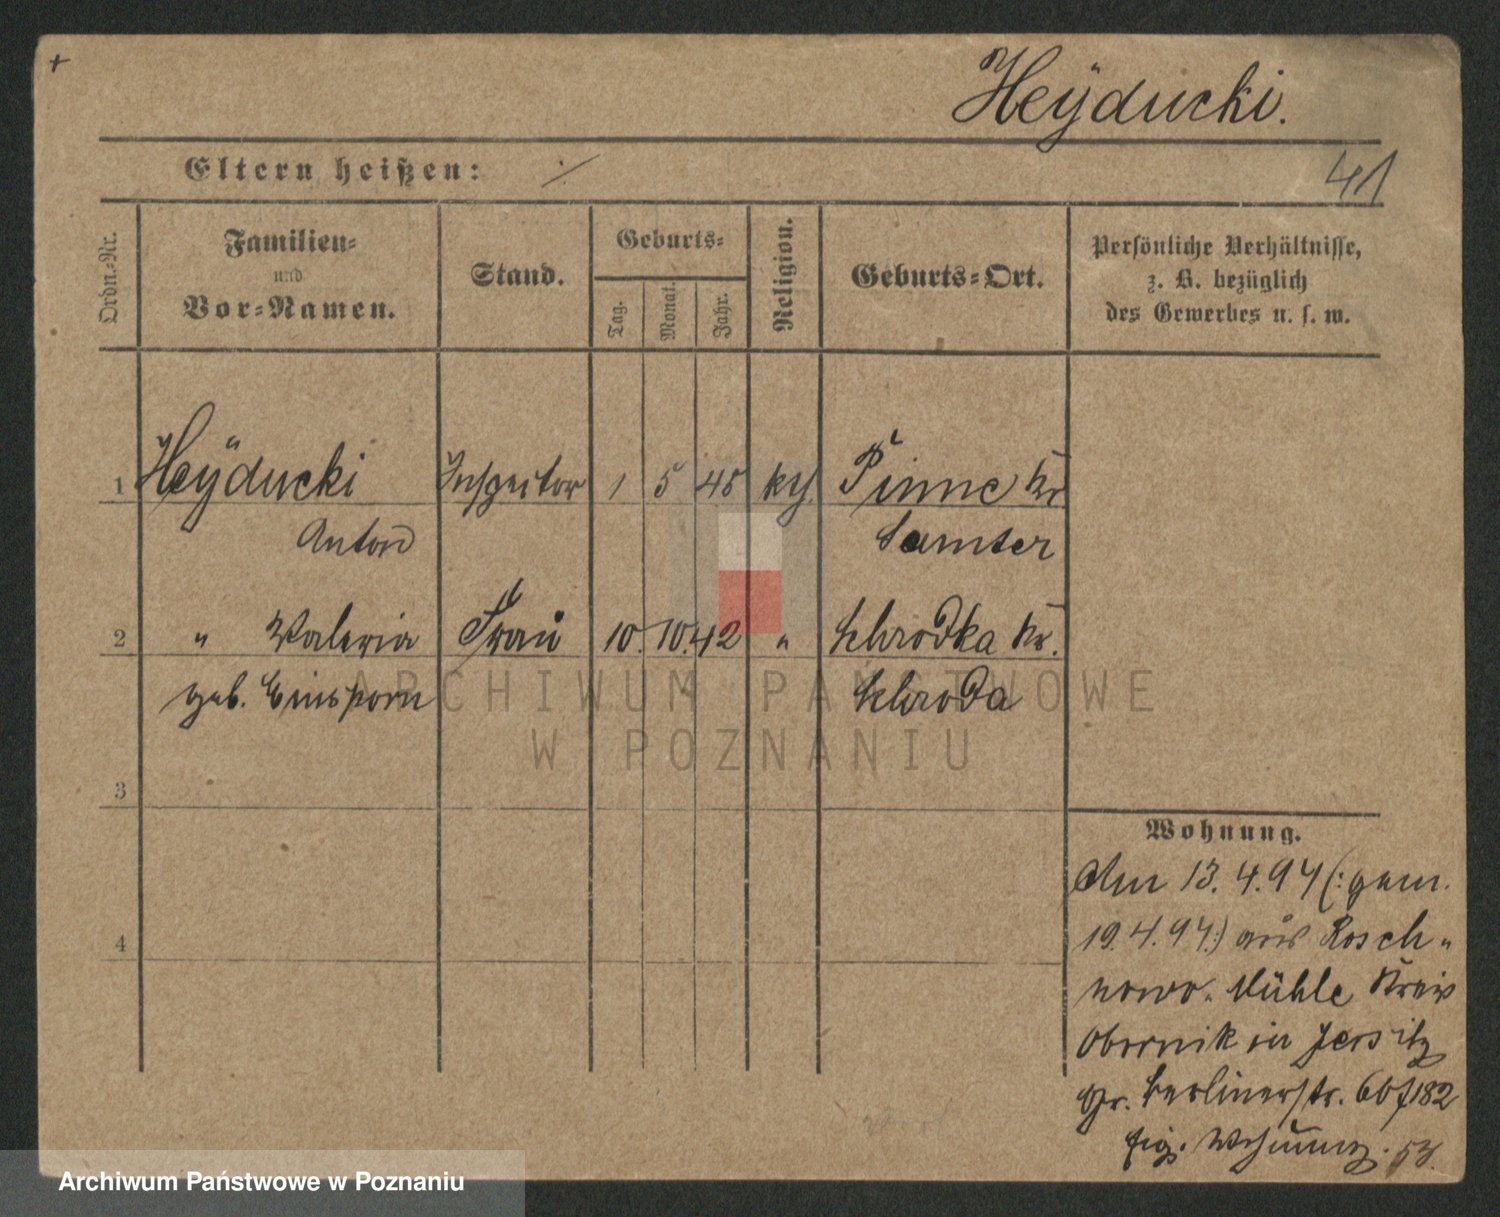 +
Heÿducki.
Eltern heißen: ./.
41
Ordn.-Nr.
Familien-
und
Vor-Namen.
Stand.
Geburts-
Tag.
Monat.
Jahr.
Religion.
Geburts-Ort.
Persönliche Verhältnisse,
z. B. bezüglich
des Gewerbes u. s. w.
1 Heÿducki Inspektor 1 5 45 kth. Pinne Kr.
Anton Samter
2 " Valeria Frau 10. 10. 42 " Schrodka Kr.
geb. Einsporn Schroda
ARCHIWUM PAŃSTWOWE
W POZNANIU
3
4
Wohnung.
Am 13. 4. 94 (: gem.
19. 4. 94 :) aus Rosch-
nowo-Mühle Kreis
Obornik in Jersitz
Gr. Berlinerstr. 182
eig. Wohnung. 53.
Archiwum Państwowe w Poznaniu